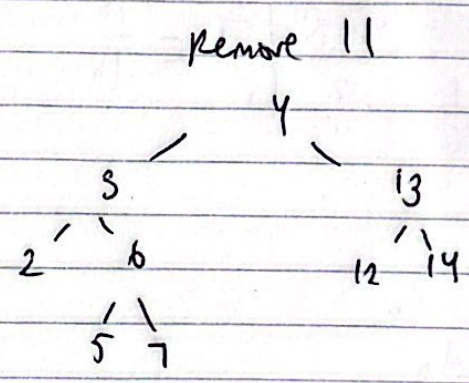 Remove 11
4
3 13
2 6 12 14
5 7